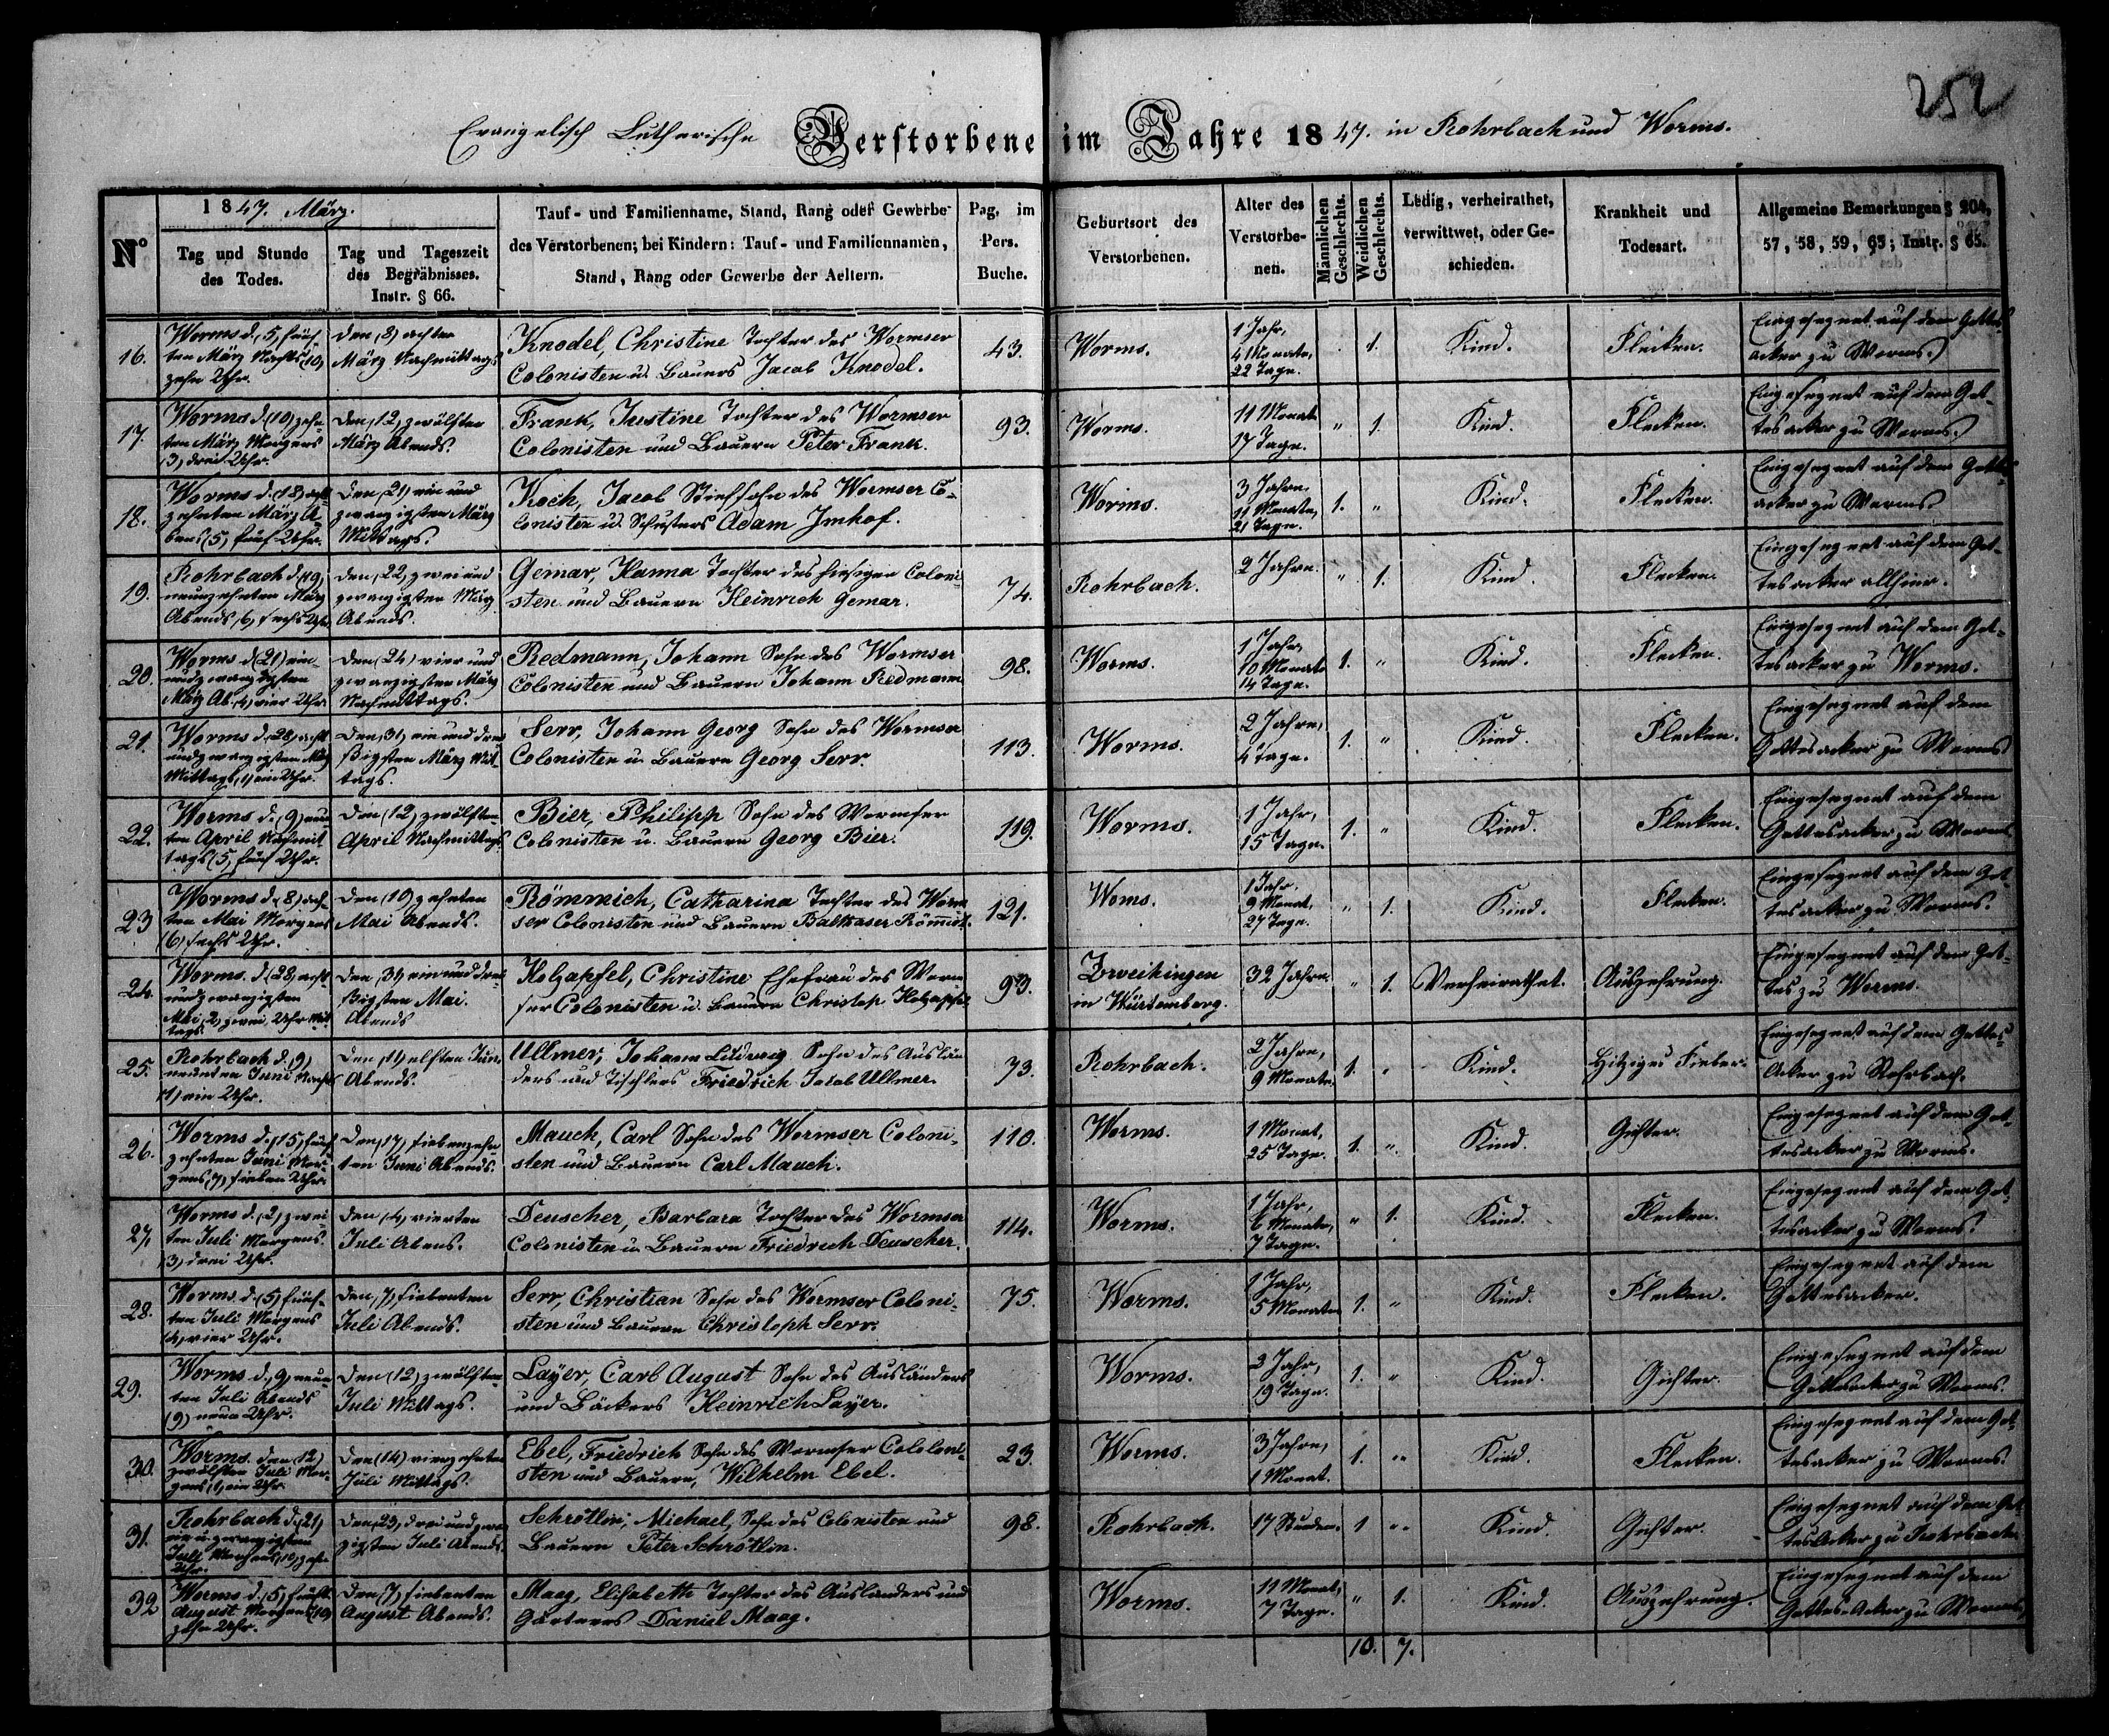 252
Evangelisch Lutherische Verstorbene im Jahre 1847. in Rohrbach und Worms.
N°
1847. März.
Tag und Stunde
des Todes.
Tag und Tageszeit
des Begräbnisses.
Instr. § 66.
Tauf- und Familienname, Stand, Rang oder Gewerbe
des Verstorbenen; bei Kindern: Tauf- und Familiennamen,
Stand, Rang oder Gewerbe der Aeltern.
Pag. im
Pers.
Buche.
Geburtsort des
Verstorbenen.
Alter des
Verstorbe-
nen.
Männlichen
Geschlechts.
Weiblichen
Geschlechts.
Ledig, verheirathet,
verwittwet, oder Ge-
schieden.
Krankheit und
Todesart.
Allgemeine Bemerkungen § 204,
57, 58, 59, 65; Instr. § 65.
16.
Worms d. (5) fünf-
ten März Nachts (10)
zehn Uhr.
den (8) achten
März Nachmittags
Knodel, Christine Tochter des Wormser
Colonisten u. Bauers Jacob Knodel.
43.
Worms.
1 Jahr,
4 Monate,
22 Tage.
1.
Kind.
Flecken.
Eingesegnet auf dem Gottes-
acker zu Worms.
17.
Worms d. (10) zehn-
ten März Morgens
(3) drei Uhr.
den (12) zwölften
März Abends.
Frank, Justine Tochter des Wormser
Colonisten und Bauern Peter Frank.
93.
Worms.
11 Monate
17 Tage.
" 1.
Kind.
Flecken.
Eingesegnet auf dem Got-
tesacker zu Worms.
18.
Worms d. (18) acht-
zehnten März A-
bens (5) fünf Uhr.
den (21) ein und
zwanzigsten März
Mittags.
Koch, Jacob Stiefsohn des Wormser Co-
lonisten u. Schusters Adam Imhof.
Worms.
3 Jahre,
11 Monate,
21 Tage.
1. "
Kind.
Flecken.
Eingesegnet auf dem Gottes-
acker zu Worms.
19.
Rohrbach d. (19)
neunzehnten März
Abends (6) sechs Uhr.
den (22) zwei und
zwanzigsten März
Abends.
Gemar, Hanna Tochter des hiesigen Coloni-
sten und Bauern Heinrich Gemar.
74.
Rohrbach.
2 Jahre.
" 1.
Kind.
Flecken.
Eingesegnet auf dem Got-
tesacker allhier.
20.
Worms d. (21) ein-
undzwanzigsten
März Ab. (4) vier Uhr
den (24) vier und
zwanzigsten März
Nachmittags.
Redmann, Johann Sohn des Wormser
Colonisten und Bauern Johann Redmann
98.
Worms.
1 Jahr,
10 Monate
14 Tage.
1. "
Kind.
Flecken.
Eingesegnet auf dem Got-
tesacker zu Worms.
21.
Worms d. (28) acht
undzwanzigsten März
Mittags (1) ein Uhr.
den (31) ein und drei
ßigsten März Mit-
tags.
Serr, Johann Georg Sohn des Wormser
Colonisten u. Bauern Georg Serr.
113.
Worms.
2 Jahre,
4 Tage.
1. "
Kind.
Flecken.
Eingesegnet auf dem
Gottesacker zu Worms
22.
Worms d. (9) neun
ten April Nachmit
tags (5) fünf Uhr.
den (12) zwölften
April Nachmittags.
Bier, Philipp Sohn des Wormser
Colonisten u. Bauern Georg Bier.
119.
Worms.
1 Jahr,
15 Tage.
1. "
Kind.
Flecken.
Eingesegnet auf dem
Gottesacker zu Worms
23
Worms d. (8) ach-
ten Mai Morgens
(6) sechs Uhr.
den (10) zehnten
Mai Abends.
Römmich, Catharina Tochter des Worm
ser Colonisten und Bauern Balthaser Römich.
121.
Woms.
1 Jahr.
9 Monat,
27 Tage.
" 1.
Kind.
Flecken.
Eingesegnet auf dem Got-
tesacker zu Worms.
24.
Worms. d. (28) acht
undzwanzigsten
Mai (2) zwei Uhr Mit
tags.
den (31) ein und drei
ßigsten Mai.
Abends
Holzapfel, Christine Ehefrau des Worm
ser Colonisten u. Bauern Christoph Holzapfel
93.
in Würtemberg.
32 Jahre.
" 1.
Verheirathet.
Auszehrung.
Eingesegnet auf dem Got-
tes zu Worms.
25.
Rohrbach d. (9)
neunten Juni Nachts
(1) ein Uhr.
den (11) elften Juni
Abends.
Ullmer, Johann Ludwig Sohn des Auslän
ders und Tischlers Friedrich Jacob Ullmer.
73.
Rohrbach.
2 Jahre,
9 Monate.
1. "
Kind.
Hitziges Fieber.
Eingesegnet auf dem Gottes-
Acker zu Rohrbach.
26.
Worms d. (15) fünf
zehnten Juni Mor-
gens (7) sieben Uhr.
Den (17) siebenzehn-
ten Juni Abends.
Mauch, Carl Sohn des Wormser Coloni-
sten und Bauern Carl Mauch.
110.
Worms.
1 Monat,
25 Tage.
1. "
Kind.
Gichter.
Eingesegnet auf dem Got-
tesacker zu Worms.
27.
Worms d. (2) zwei-
ten Juli Morgens.
(3) drei Uhr.
den (4) vierten
Juli Abens.
Deuscher, Barbara Tochter des Wormser
Colonisten u. Bauern Friedrich Deuscher.
114.
Worms.
1 Jahr,
6 Monate,
7 Tage.
" 1.
Kind.
Flecken.
Eingesegnet auf dem Got-
tesacker zu Worms.
28.
Worms. d. (5) fünf-
ten Juli Morgens
(4) vier Uhr.
den (7) siebenten
Juli Abends.
Serr, Christian Sohn des Wormser Coloni-
sten und Bauern Christoph Serr.
75.
Worms.
1 Jahr,
5 Monate
1. "
Kind.
Flecken.
Eingesegnet auf dem
Gottesacker.
29.
Worms. d. (9) neun
ten Juli Abends
(9) neun Uhr.
Den (12) zwölften
Juli Mittags.
Layer, Carl August Sohn des Ausländers
und Bäckers Heinrich Layer.
Worms.
Jahr,
19 Tage.
1. "
Kind.
Gichter.
Eingesegnet auf dem
Gottesacker zu Worms.
30.
Worms. den (12)
zwölften Juli Mor-
gens (1) ein Uhr
Den (14) vierzehnten
Juli Mittags.
Ebel, Friedrich Sohn des Wormser Cololoni-
sten und Bauern, Wilhelm Ebel.
23.
Worms.
3 Jahre,
1 Monat.
1. "
Kind.
Flecken.
Eingesegnet auf dem Got-
tesacker zu Worms.
31.
Rohrbach d. (21)
ein u zwanzigsten
Juli Morgens (10) zehn
Uhr.
Den (23) drei und zwan
zigsten Juli Abends.
Schrötlin, Michael, Sohn des Colonisten und
Bauern Peter Schrötlin.
98.
Rohrbach.
17 Stunden.
1 "
Kind.
Gichter.
Eingesegnet auf dem Got-
tesAcker zu Rohrbach
32
Worms d. (5) fünft.
August Morgens (10)
zehn Uhr.
Den (7) siebenten
August Abends.
Maag, Elisabeth Tochter des Auslanders und
Gärtners Daniel Maag.
Worms.
11 Monat,
7 Tage.
" 1.
Kind.
Auszehrung.
Eingesegnet auf dem
Gottes-Acker zu Worms,
10. 7.